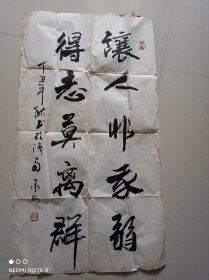 讓人非我弱
得志莫離群
丁丑年
REDMI NOTE 9